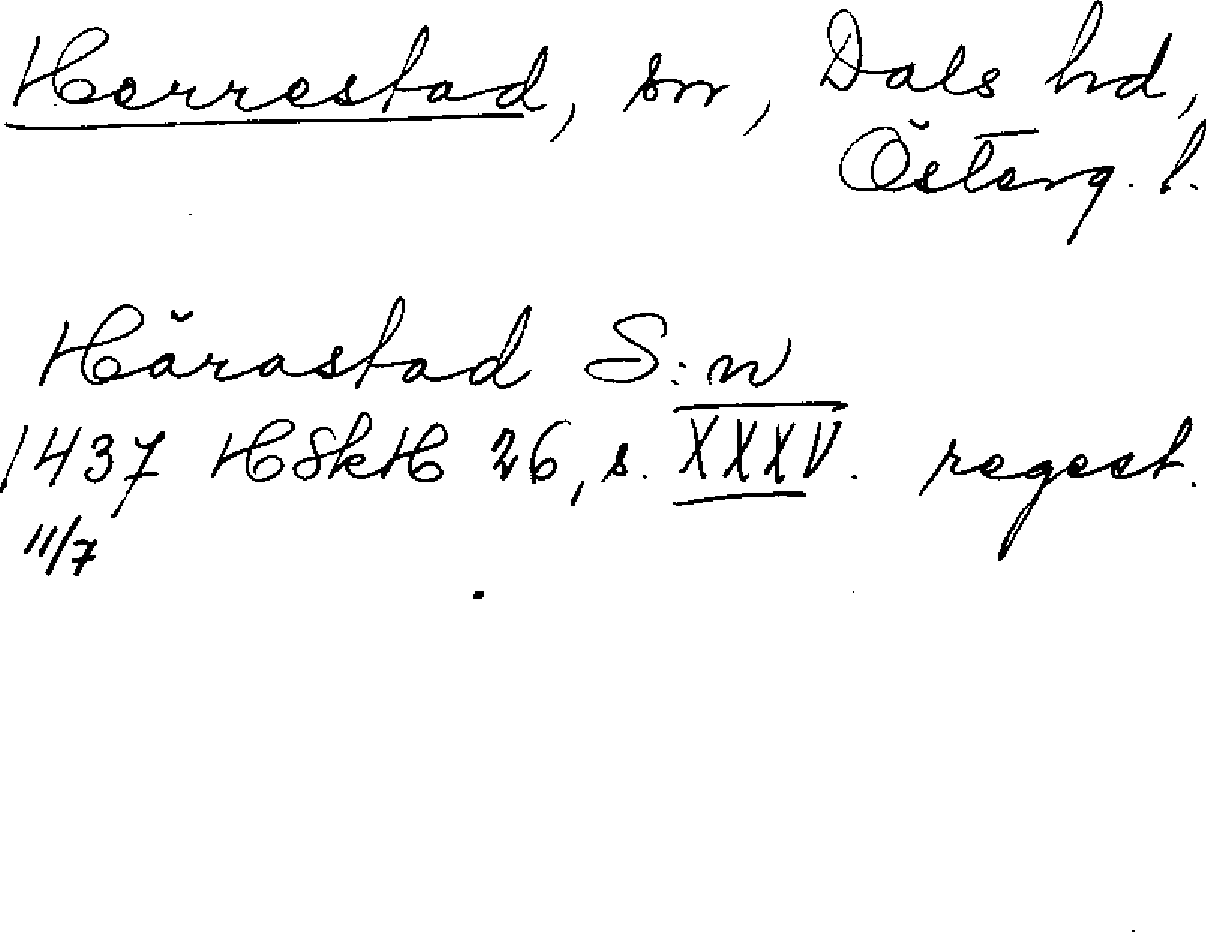 Herrestad, sn, Dals hd,
Österg. l.
Härastad S:n
1437 HSkH 26, s. XXXV. regest.
11/7